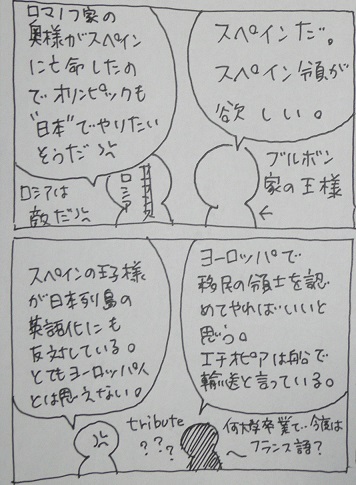 スペインだ。
スペイン領が
欲しい。
ブルボン
家の王様
ロマノフ家の
奥様がスペイン
に亡命したの
でオリンピックも
"日本"でやりたい
そうだ
ロシア
ロシアは
敵だ
ヨーロッパで
移民の領土を認
めてやればいいと
思う。
エチオピアは船で
輸送と言っている。
スペインの王子様
が日本列島の
英語化にも
反対している。
とてもヨーロッパ人
とは思えない。
tribute
???
何大学卒業で、今度は
〜フランス語?